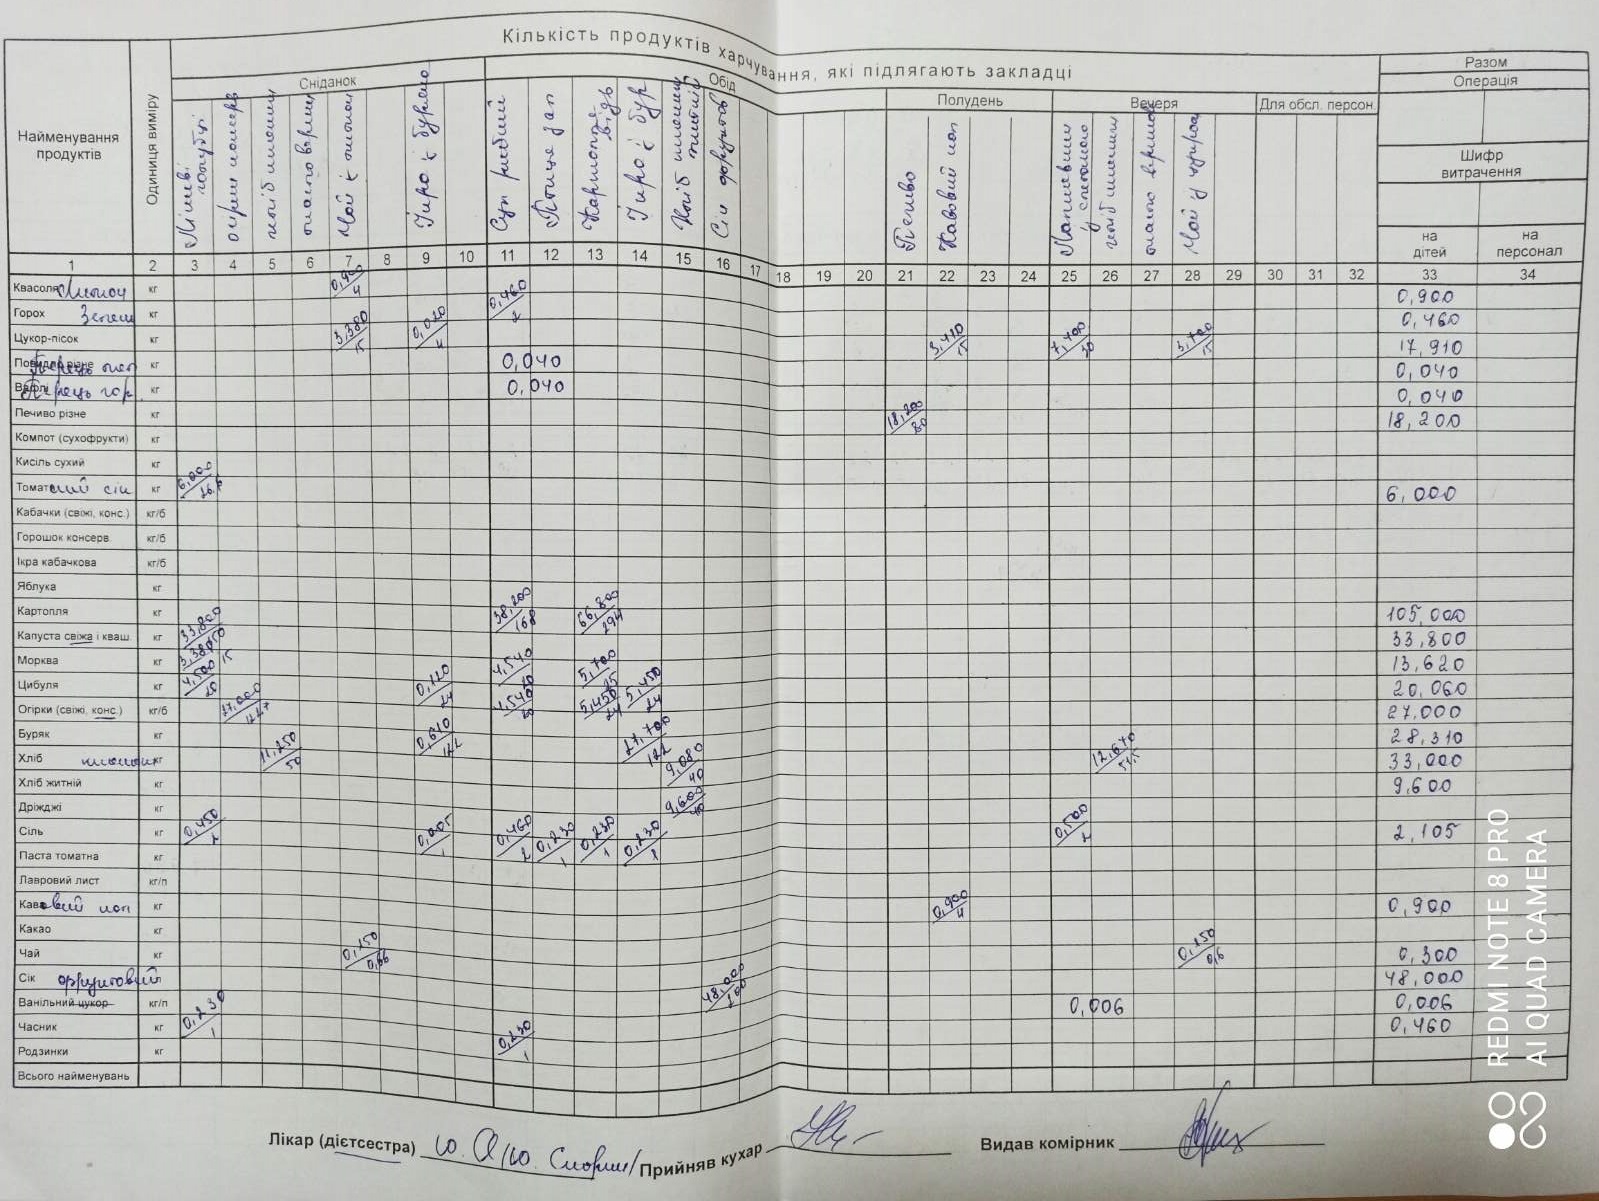 Кількість продуктів харчування, які підлягають закладці
Найменування продуктів
Одиниця виміру
Сніданок
Обід
Полудень
Вечеря
Для обсл. персон.
Разом
Операція
Шифр витрачення
на дітей
на персонал
Ліниві голубці
Чай з лимоном
Ікра з буряка
Суп рибний
Птиця зап
Картопля відв
Ікра з бур
Сік фруктов
Печиво
Кавовий нап
масло вершков
Чай із цукром
1 2 3 4 5 6 7 8 9 10 11 12 13 14 15 16 17 18 19 20 21 22 23 24 25 26 27 28 29 30 31 32 33 34
Квасоля Лимон кг 0,900/4 0,900
Горох Зелен кг 0,460/2 0,460
Цукор-пісок кг 3,380/15 0,020/4 3,410/15 7,400/30 3,700/15 17,910
Повидло різне Перець мел кг 0,040 0,040
Вафлі Перець гор. кг 0,040 0,040
Печиво різне кг 18,200/80 18,200
Компот (сухофрукти) кг
Кисіль сухий кг
Томатний сік кг 6,000/26,6 6,000
Кабачки (свіжі, конс.) кг/б
Горошок консерв кг/б
Ікра кабачкова кг/б
Яблука кг
Картопля кг 38,200/168 66,800/294 105,000
Капуста свіжа і кваш кг 33,800/150 33,800
Морква кг 3,380/15 4,540/20 5,700/25 13,620
Цибуля кг 4,500/20 0,120/24 4,540/20 5,450/24 5,450/24 20,060
Огірки (свіжі, конс.) кг/б 27,000 27,000
Буряк кг 0,610/122 27,700/122 28,310
Хліб пшенич кг 11,250/50 9,080/40 12,670 33,000
Хліб житній кг 9,600/40 9,600
Дріжджі кг
Сіль кг 0,450/2 0,005/1 0,460/2 0,230/1 0,230/1 0,230/1 0,500/2 2,105
Паста томатна кг
Лавровий лист кг/п
Кавовий нап кг 0,900/4 0,900
Какао кг
Чай кг 0,150/0,66 0,150/0,6 0,300
Сік фруктовий 48,000/200 48,000
Ванільний цукор кг/п 0,006 0,006
Часник кг 0,230/1 0,230/1 0,460
Родзинки кг
Всього найменувань
Лікар (дієтсестра)
Прийняв кухар
Видав комірник
REDMI NOTE 8 PRO
AI QUAD CAMERA